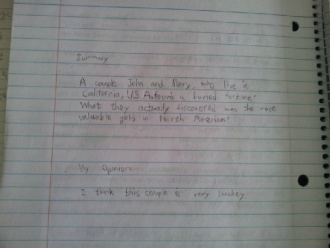 Summary
A couple John and Mary, who live in
California, US a buried fortune!
What they actually discovered was the most
valuable gold in North America!
My Opinion
I think this couple is very luckey